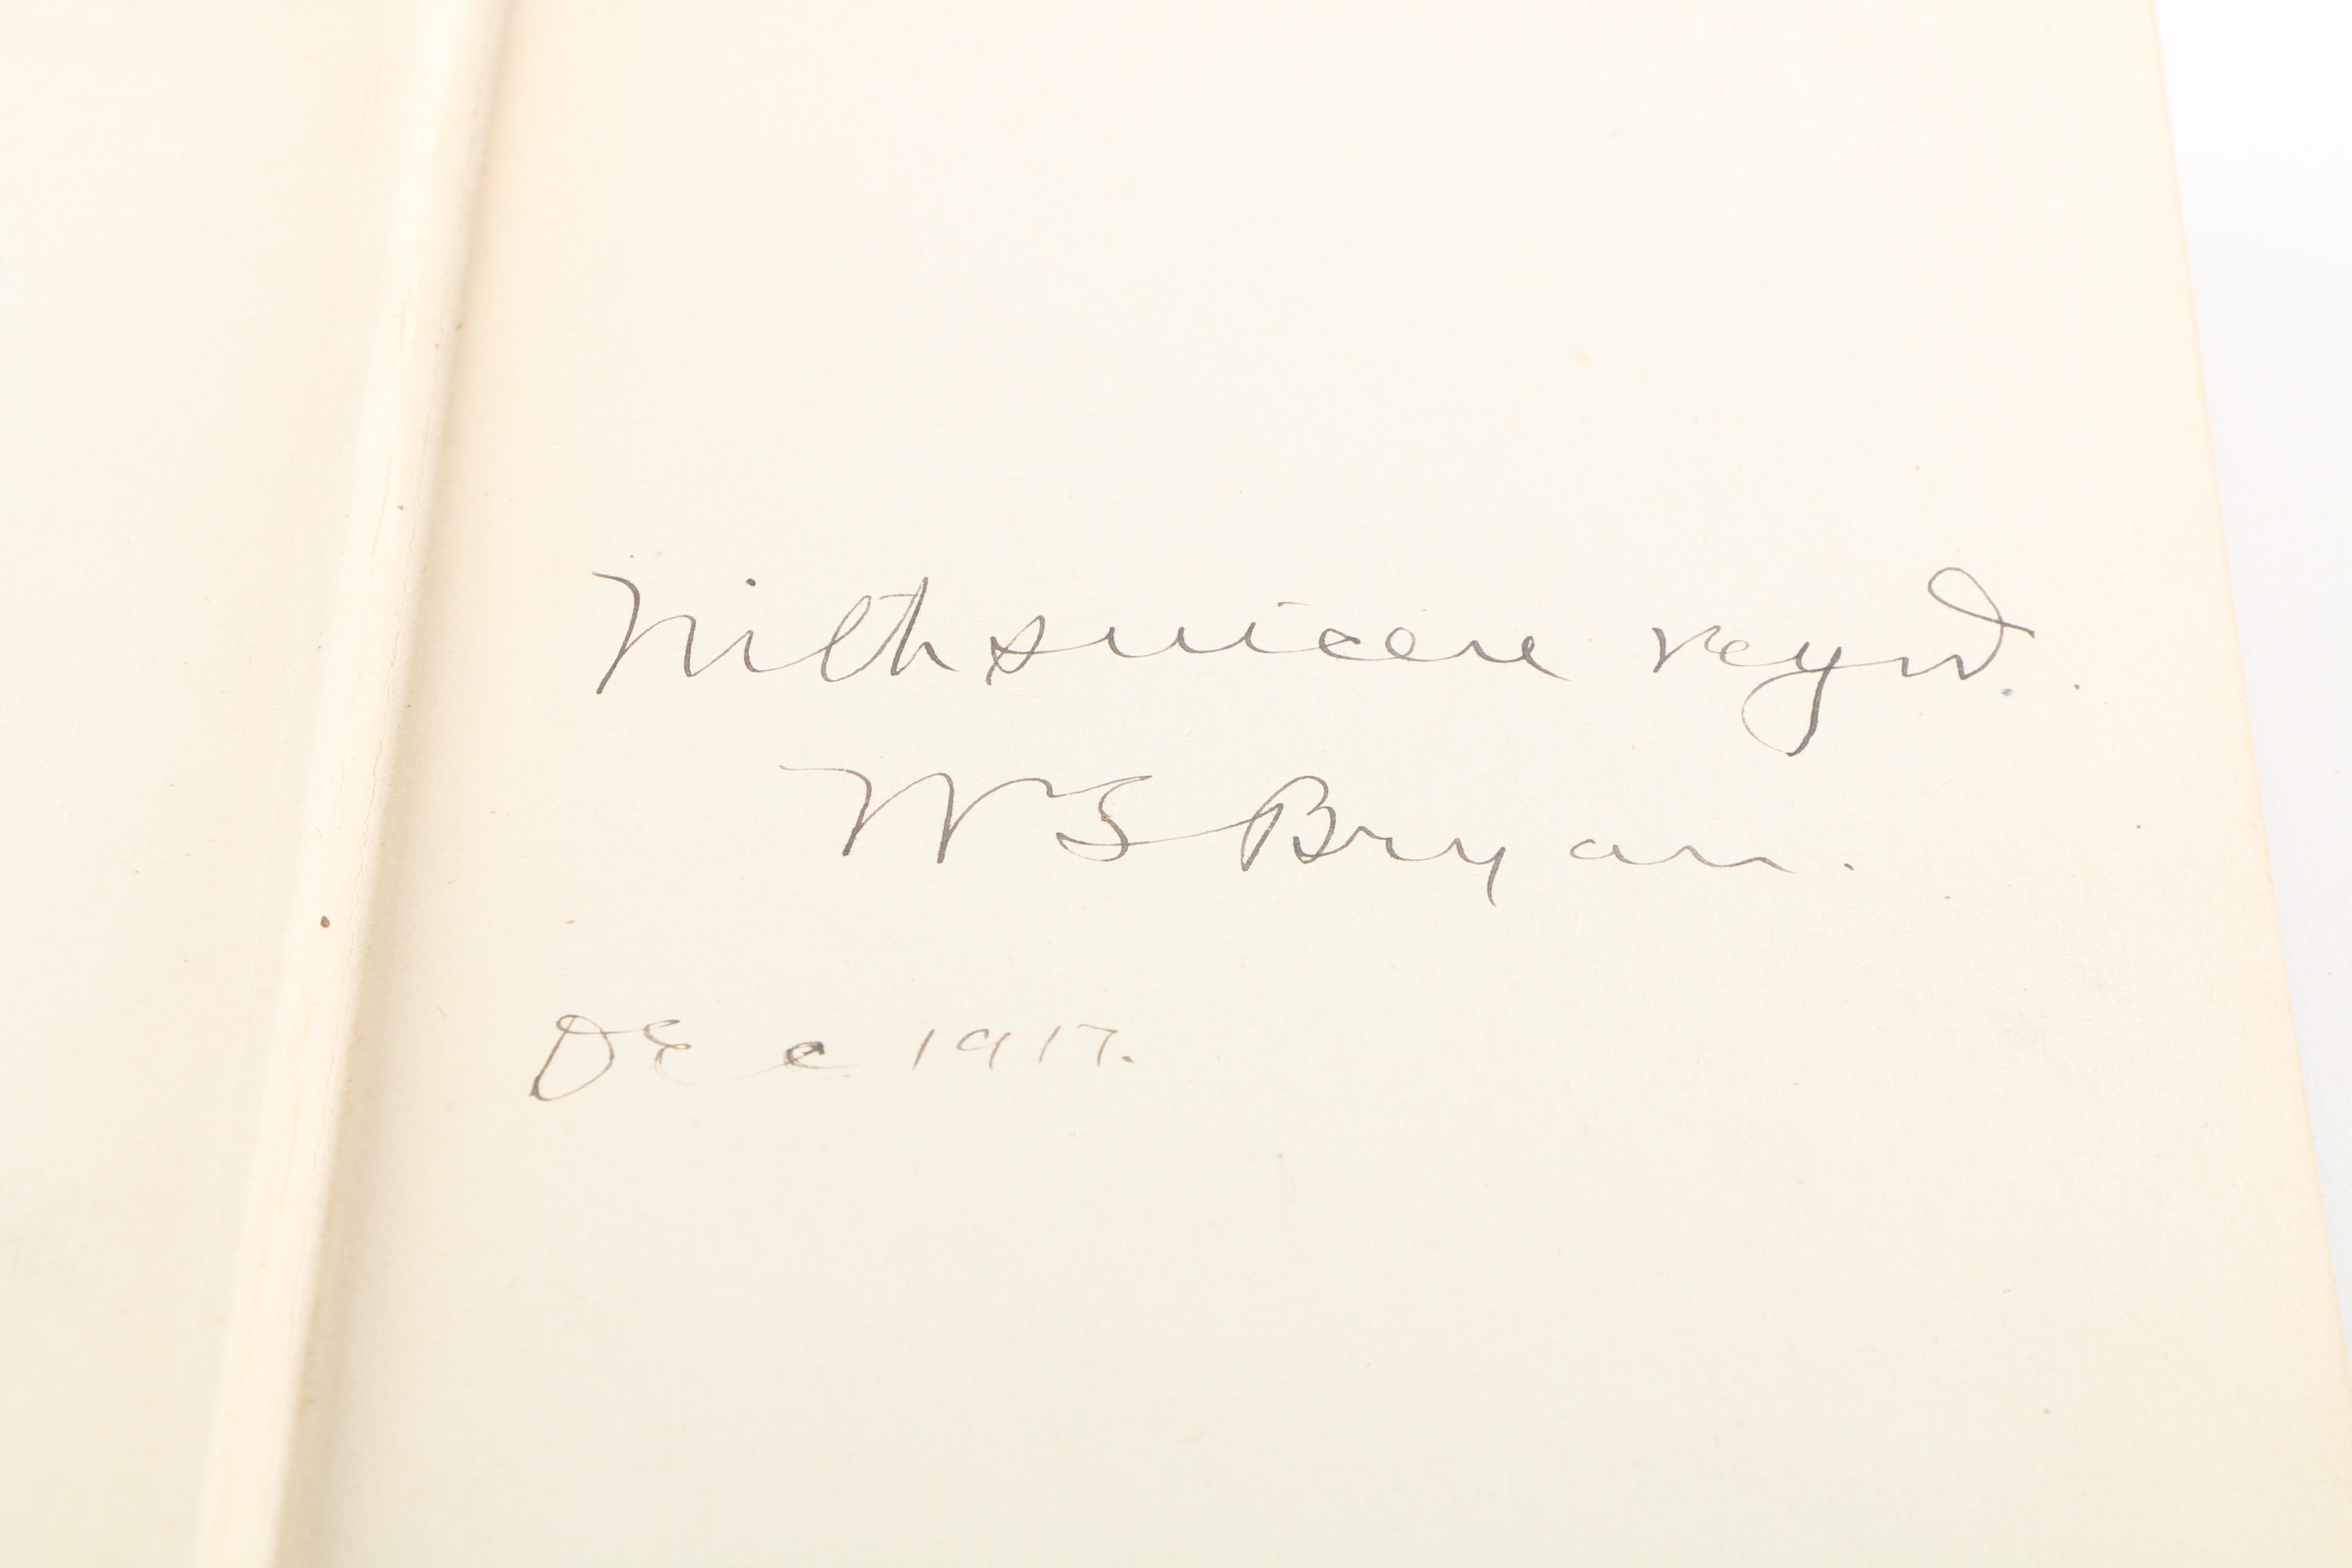 With sincere regard.
W S Bryan.
Dec 1917.